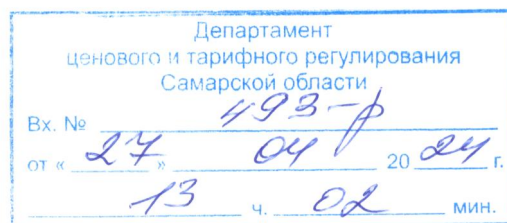 Департамент
ценового и тарифного регулирования
Самарской области
Вх. № 493-р
от « 27 » 04 20 24 г.
13 ч. 02 мин.